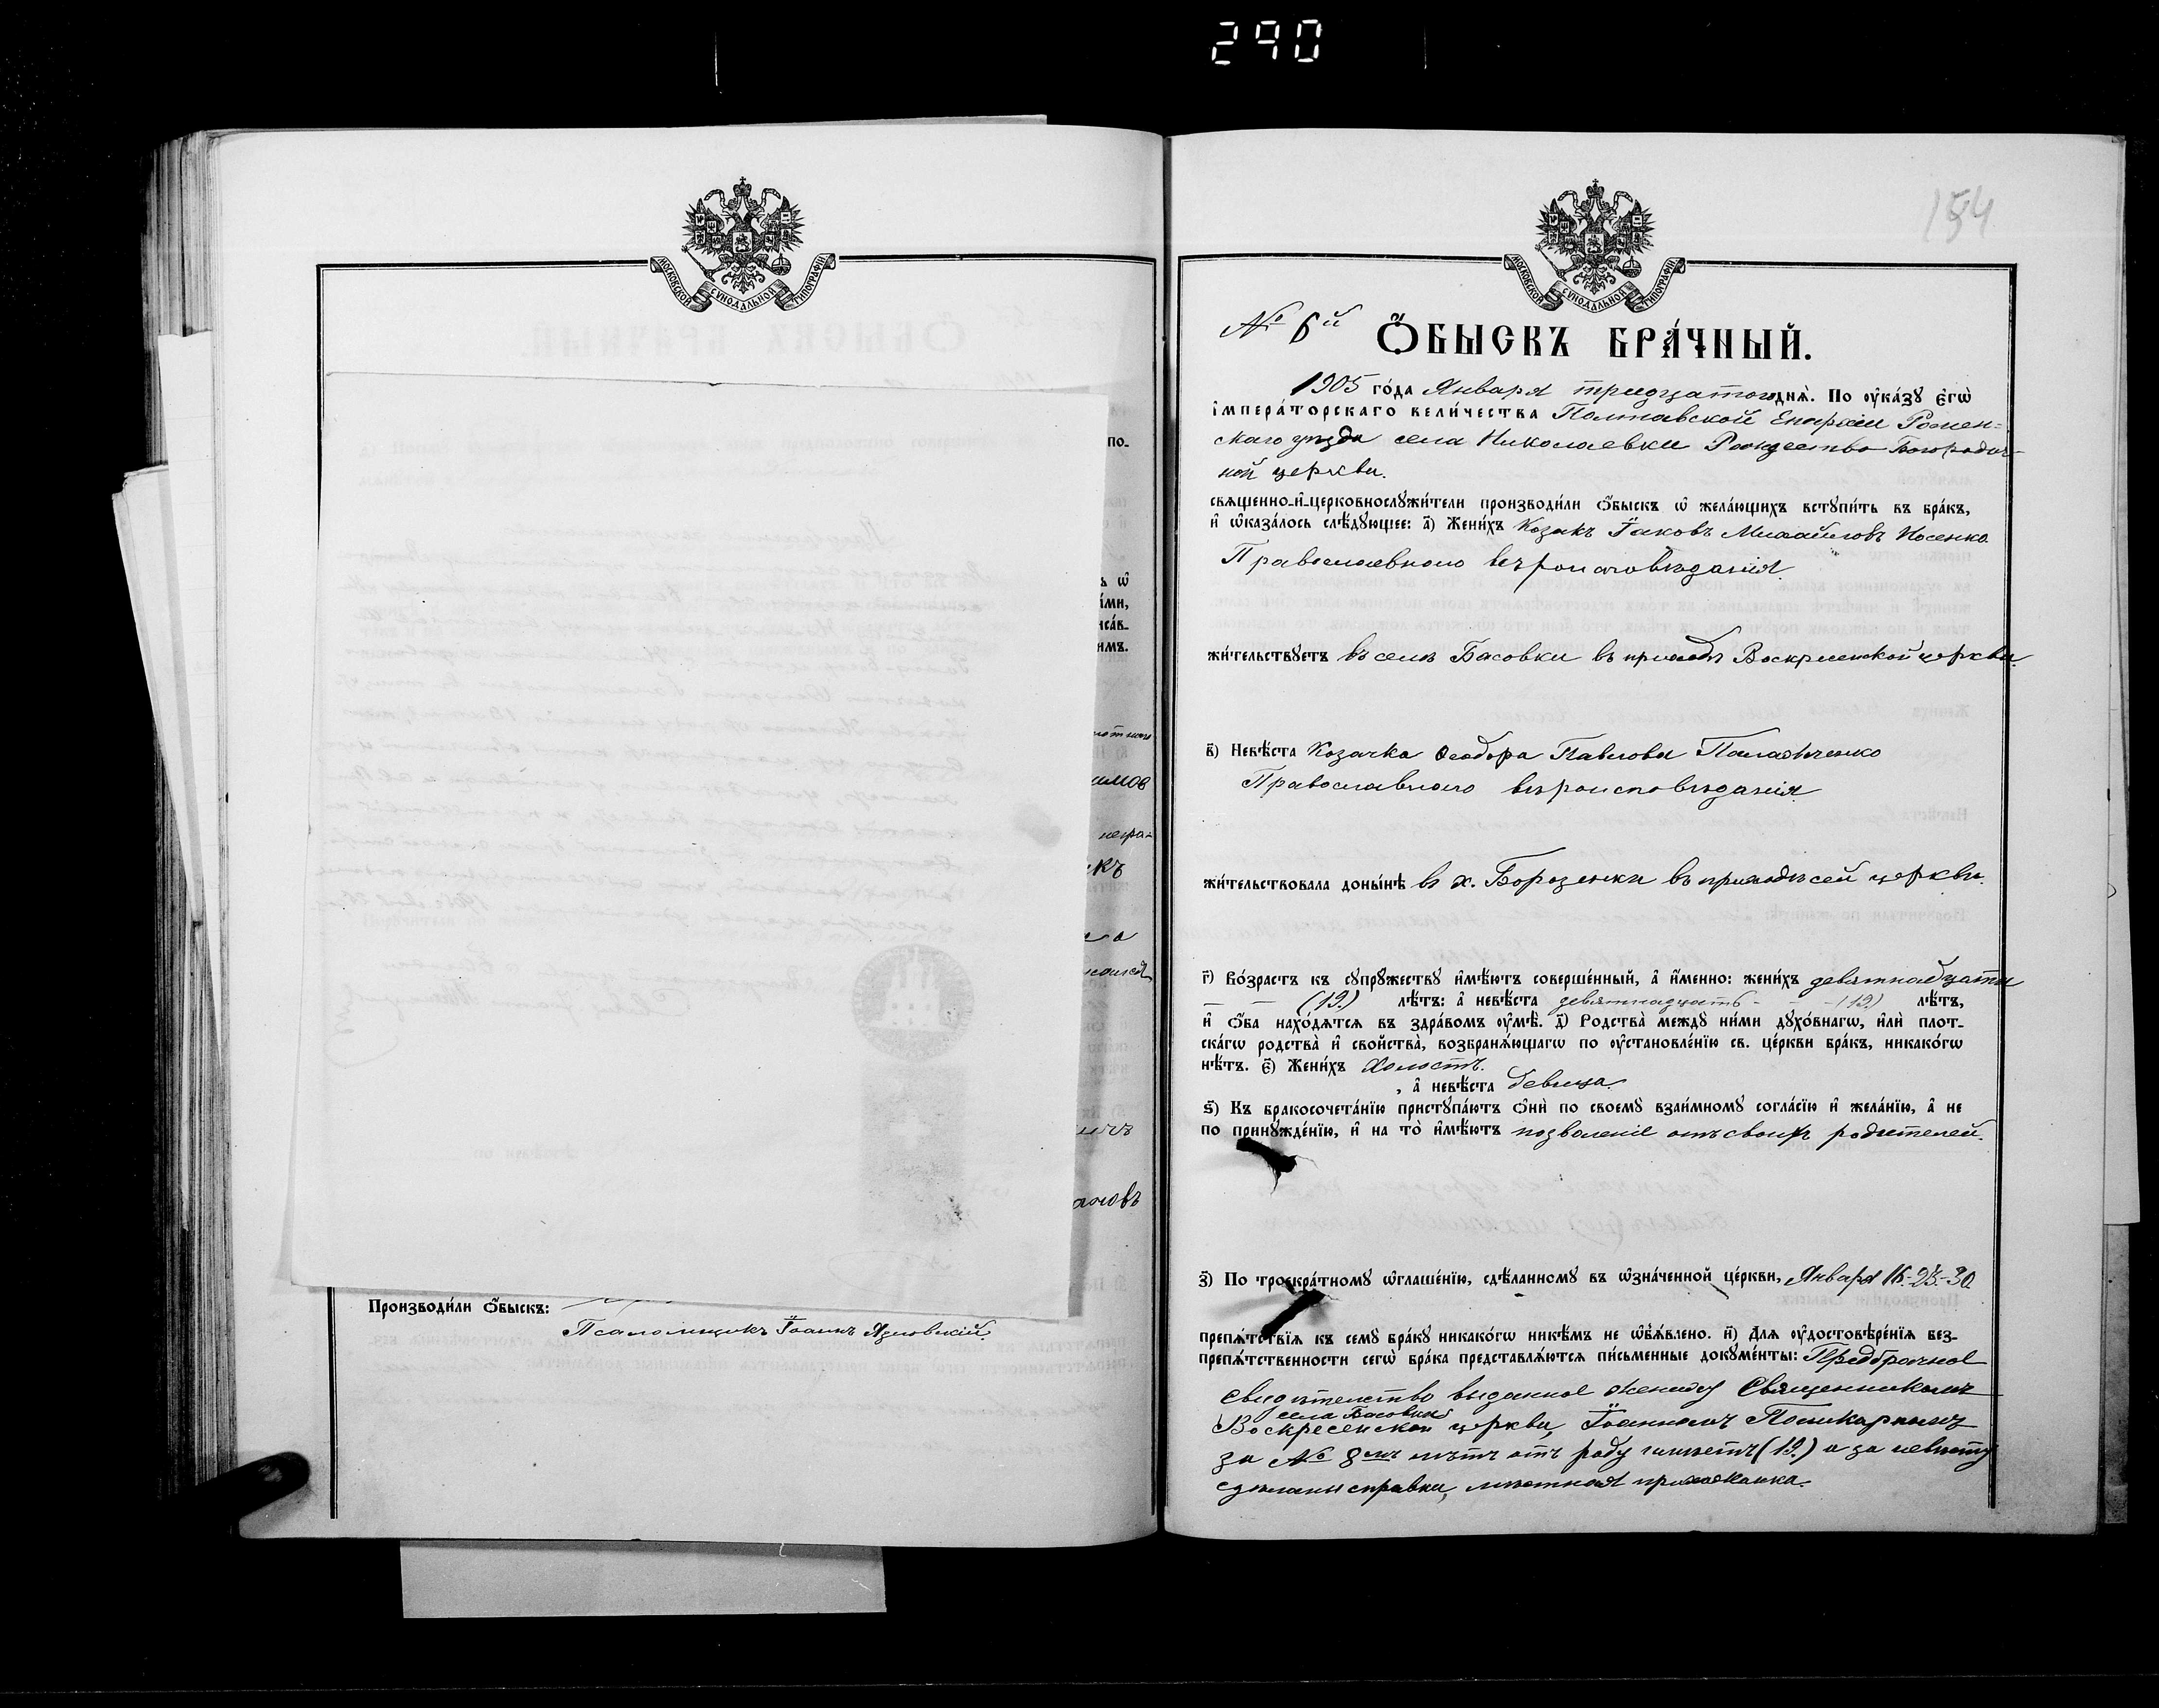 290
МОСКОВСКОЙ СУНОДАЛЬНОЙ ТИПОГРАФІИ
по-
ъ ѡ҆
и́ми,
иса́в-
имъ.
Произво́дили ѻ҆́быскъ:
Псаломщикъ Іоаннъ
154
МОСКОВСКОЙ СУНОДАЛЬНОЙ ТИПОГРАФІИ
№ 6й Ѻ҆́БЫСКЪ БРА́ЧНЫЙ.
1905 го́да Января тридцатого дня̀. По ᲂу҆ка́зꙋ є҆гѡ̀
і҆мпера́торскагѡ вели́чества Полтавской Епархіи Ромен-
скаго уѣзда села Николаевки Рождество Богородич-
ной церкви.
свѧщенно-и҆-церковнослꙋжи́тели производи́ли ѻ҆́быскъ ѡ҆ жела́ющихъ встꙋпи́ть въ бра́къ,
и҆ ѡ҆каза́лось слѣ́дꙋющее: а҃) Жени́хъ Козакъ Іаковъ Михайловъ Носенко
Православного вѣроисповѣданія.
жи́тельствꙋетъ въ селѣ Басовки въ приходѣ Воскресенской церкви.
в҃) Невѣ́ста Козачка Ѳеодора Павлова
Православного вѣроисповѣданія
жи́тельствовала доны́нѣ въ х. Борозенки въ приходѣ сей церкви.
г҃) Во́зрастъ къ сꙋпрꙋ́жествꙋ и҆мѣ́ютъ соверше́нный, а҆ и҆́менно: жени́хъ девятнадцати
(19) лѣ́тъ: а҆ невѣ́ста девятнадцать (19) лѣ́тъ,
и҆ ѻ҆́ба нахо́дѧтсѧ въ здра́вомъ ᲂу҆мѣ̀. д҃) Родства̀ междꙋ̀ ни́ми дꙋхо́внагѡ, и҆лѝ плот-
ска́гѡ родства̀ и҆ свойства̀, возбранѧ́ющагѡ по ᲂу҆становле́нїю св. це́ркви бра́къ, никако́гѡ
нѣ́тъ. є҃) Жени́хъ Холостъ.
, а҆ невѣ́ста девица.
ѕ҃) Къ бракосочета́нїю пристꙋпа́ютъ ѻ҆нѝ по своемꙋ̀ взаи́мномꙋ согла́сїю и҆ жела́нїю, а҆ не
по принꙋжде́нїю, и҆ на то̀ и҆мѣ́ютъ позволеніе отъ своихъ родителей.
з҃) По троекра́тномꙋ ѡ҆глаше́нїю, сдѣ́ланномꙋ въ ѡ҆зна́ченной це́ркви, Января 16-23-30
препѧ́тствїѧ къ семꙋ̀ бра́кꙋ никако́гѡ никѣ́мъ не ѡ҆б̾ѧ́влено. и҃) Длѧ ᲂу҆достовѣре́нїѧ без-
препѧ́тственности сегѡ̀ бра́ка представлѧ́ютсѧ пи́сьменные докꙋме́нты: Предбрачное
свидѣтельство выданное жениху Священникомъ
села Басовки
Воскресенской церкви, Іоанномъ
за № 8мъ лѣтъ отъ роду имѣетъ (19.) а за невѣсту
сдѣланы справки, мѣстная прихожанка.